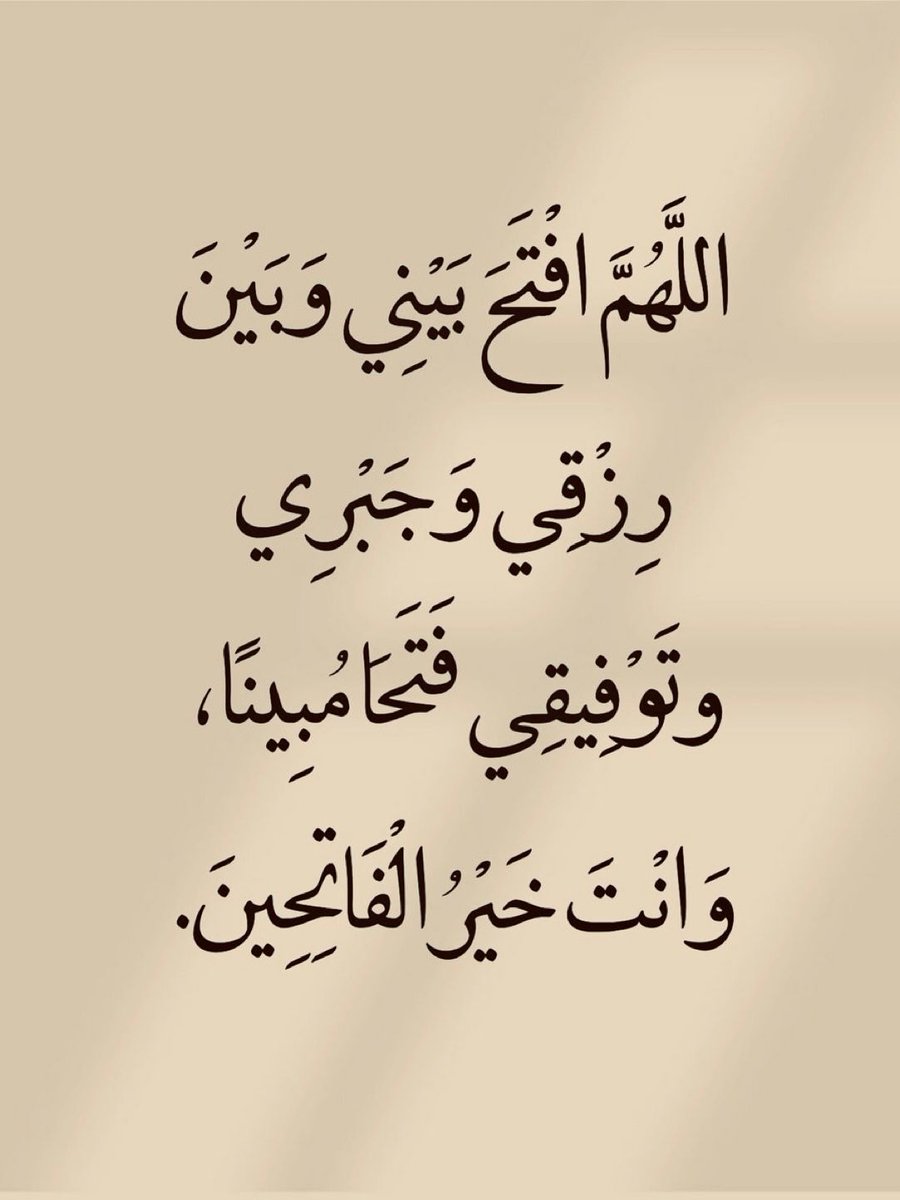 اللَّهُمَّ افْتَحَ بَيْنِي وَبَيْنَ
رِزْقِي وَجَبْرِي
وتَوْفِيقِي فَتَحَا مُبِينًا،
وَانْتَ خَيْرُ الْفَاتِحِينَ.